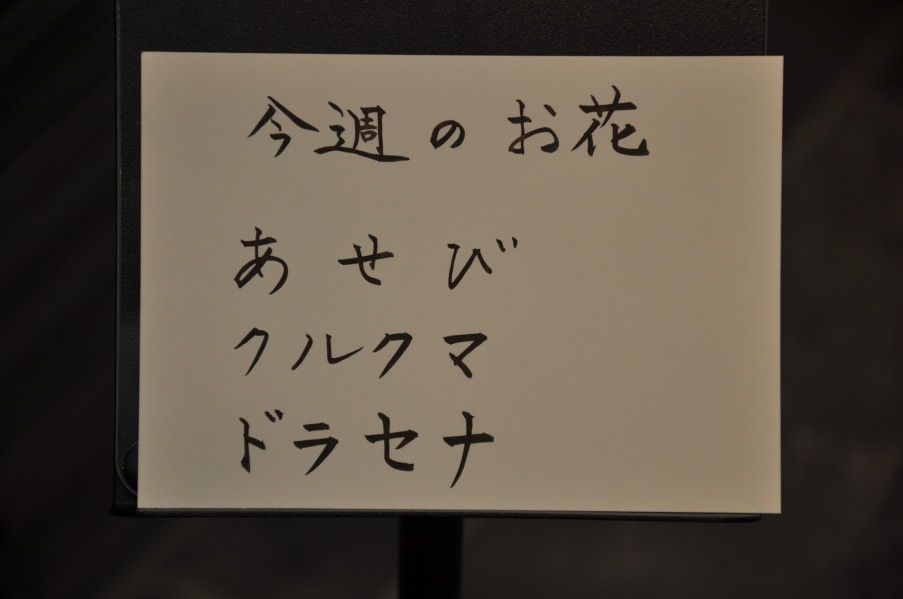 今週のお花
あせび
クルクマ
ドラセナ